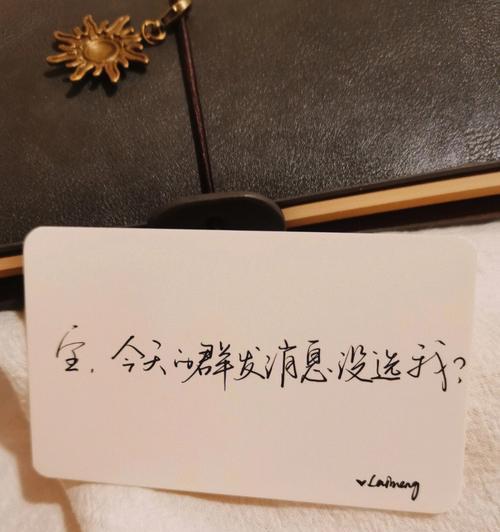 宝，今天的群发消息没选我？
♥Laimeng